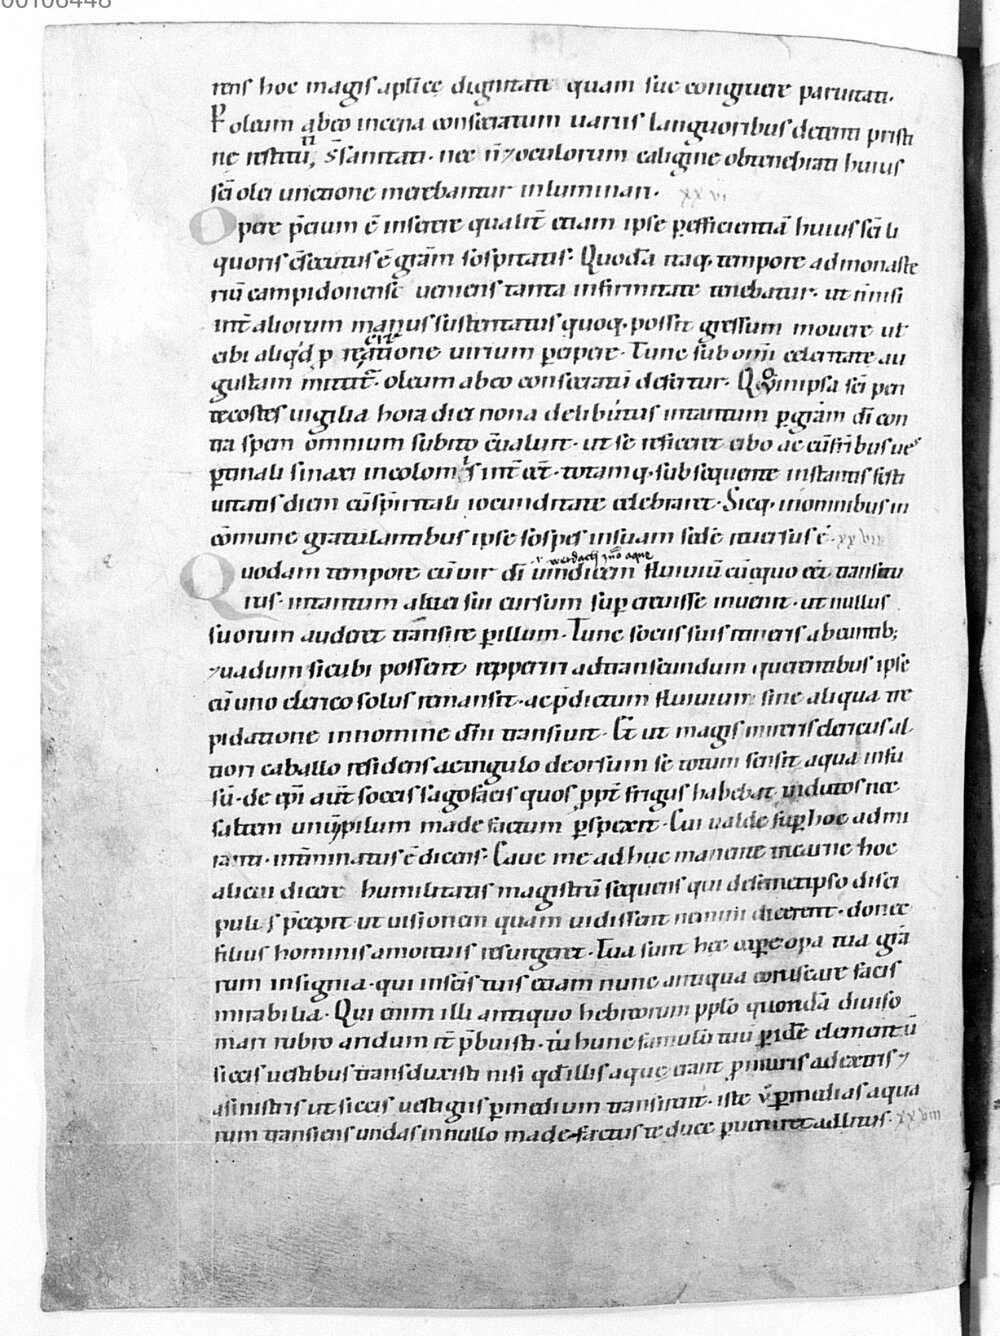 00106448
rens hoc magis aplicę dignitati quam suę congruere paruitati.
P oleum ab eo in cena consecratum uariis languoribus detenti pristi
ne restitu, s̄ sanitati. nec n̄ ⁊ oculorum caligine obtenebrati huius
sc̄i olei unctione merebantur inluminari. xxvi
Opere p̄cium ē inserere qualit̄ etiam ipse p efficientiā huius sc̄i li
quoris cōsecutus ē gr̄am sospitatis. Quodā itaq, tempore ad monaste
riū campidonense ueniens tanta infirmitate tenebatur. ut n̄ nisi
int̄ aliorum manus sustentatus quoq, possit gressum mouere uł
cibi aliq̄d p refectione uirium pcipere. Tunc sub om̄i celeritate au
gustam mittit̄. oleum ab eo consecratū defertur. Quo in ipsa sc̄i pen
tecostes uigilia hora diei nona delibutus intantum p gr̄am dī con
tra spem omnium subito cōualuit. ut se reficeret cibo ac cū fr̄ibus ues
ptinali sinaxi incolomis int̄ eēt. totamq, subsequente instantis festi
uitatis diem cū spiritali iocunditate celebraret. Sicq, in omnibus in
cōmune gratulantibus ipse sospes in suam sedē reuersus ē. xxvii
ł werdach
Quodam tempore cū uir dī uindicem fluuiū cū equo eēt transitu
rus. intantum aluei sui cursum sup creuisse inuenit. ut nullus
suorum auderet transire p illum. Tunc sociis suis itineris abeuntib;
⁊ uadum sicubi possent repperiri ad transeundum querentibus ipse
cū uno clerico solus remansit. ac p̄dictum fluuium sine aliqua tre
pidatione in nomine dn̄i transiuit. Et ut magis mireris clericus al
tiori caballo residens a cingulo deorsum se totum sensit aqua infu
sū. de ep̄i aūt soccis sagofacis quos ppt̄ frigus habebat indutos nec
saltem unū pilum madefactum pspexit. Cui ualde sup hoc admi
ranti. int̄minatus ē dicens. Caue me adhuc manente in carne hoc
alicui dicere humilitatis magistrū sequens qui de semetipso disci
pulis p̄cepit ut uisionem quam uidissent nemini dicerent. donec
filius hominis a mortuis resurgeret. Tua sunt hęc xp̄e opa tua gr̄a
rum insignia. qui in sc̄is tuis etiam nunc antiqua coruscare facis
mirabilia. Qui enim illi antiquo hebreorum pplo quondā diuiso
mari rubro aridum it̄ p̄buisti. tu hunc famulū tuū p idē elementū
siccis uestibus transduxisti nisi qd illis aquę erant p muris a dextris ⁊
a sinistris ut siccis uestigiis p medium transirent. iste ū p medias aqua
rum transiens undas in nullo madefactus te duce puenit ad litus. xxviii